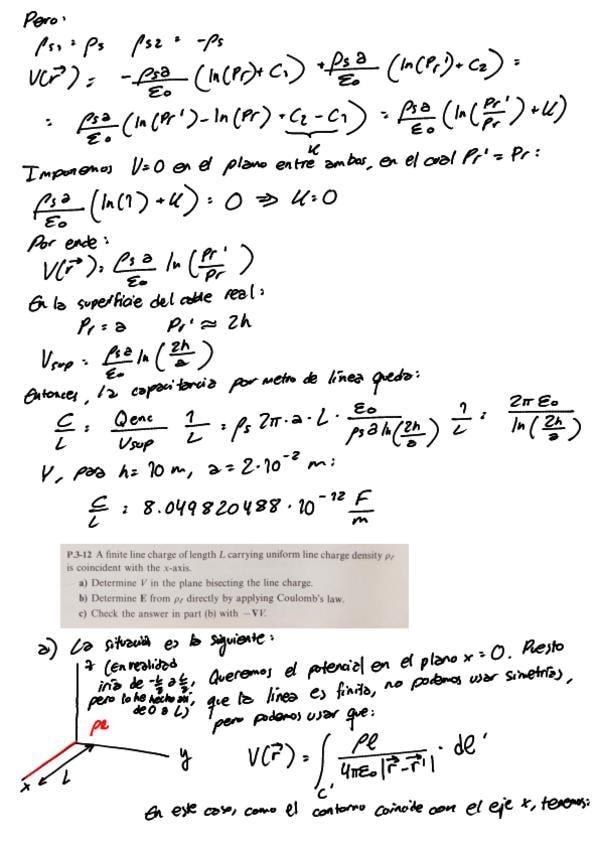 Pero:
ρs1 = ρs   ρs2 = -ρs
V(r⃗) = -ρs a/ε₀ (ln(Pr) + C₁) + ρs a/ε₀ (ln(Pr') + C₂) =
= ρs a/ε₀ (ln(Pr') - ln(Pr) + C₂ - C₁) = ρs a/ε₀ (ln(Pr'/Pr) + K)
K
Imponemos V=0 en el plano entre ambos, en el cual Pr' = Pr:
ρs a/ε₀ (ln(1) + K) = 0 ⇒ K = 0
Por ende:
V(r⃗) = ρs a/ε₀ ln(Pr'/Pr)
En la superficie del cable real:
Pr = a   Pr' ≈ 2h
Vsup = ρs a/ε₀ ln(2h/a)
Entonces, la capacitancia por metro de línea queda:
C/L = Qenc/Vsup 1/L = ρs 2π·a·L · ε₀/(ρs a ln(2h/a)) 1/L = 2πε₀/ln(2h/a)
Y, para h = 10 m, a = 2·10⁻² m:
C/L = 8.049820488·10⁻¹² F/m
P.3-12 A finite line charge of length L carrying uniform line charge density ρℓ
is coincident with the x-axis.
a) Determine V in the plane bisecting the line charge.
b) Determine E from ρℓ directly by applying Coulomb's law.
c) Check the answer in part (b) with −∇V.
a) La situación es la siguiente:
z (en realidad
iría de -L/2 a L/2,
pero lo he hecho así,
de 0 a L)
ρℓ
y
x
L
Queremos el potencial en el plano x = 0. Puesto
que la línea es finita, no podemos usar simetrías,
pero podemos usar que:
V(r⃗) = ∫C' ρℓ/(4πε₀|r⃗-r⃗'|) · dℓ'
En este caso, como el contorno coincide con el eje x, tenemos: